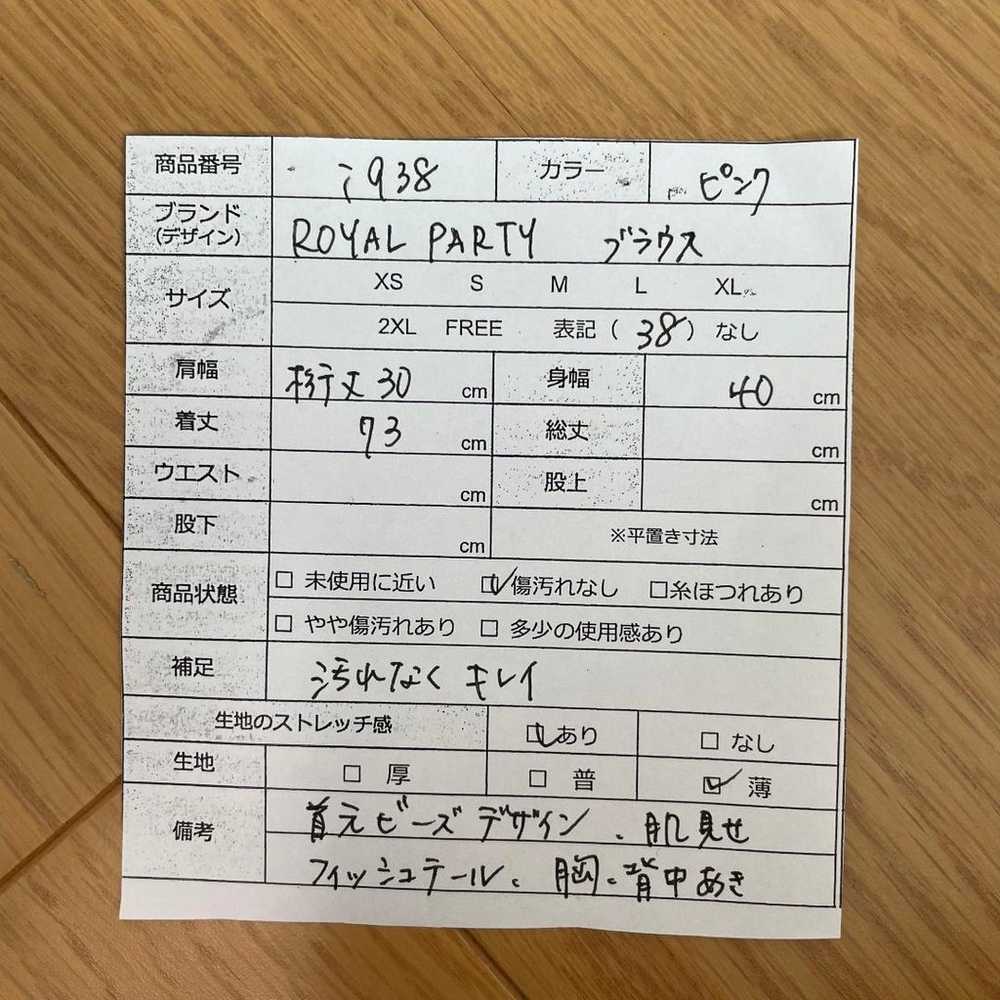 商品番号 i938 カラー ピンク
ブランド (デザイン) ROYAL PARTY ブラウス
サイズ XS S M L XL
2XL FREE 表記 ( 38 ) なし
肩幅 裄丈 30 cm 身幅 40 cm
着丈 73 cm 総丈 cm
ウエスト cm 股上 cm
股下 cm ※平置き寸法
商品状態 □ 未使用に近い ☑ 傷汚れなし □ 糸ほつれあり
□ やや傷汚れあり □ 多少の使用感あり
補足 汚れなく キレイ
生地のストレッチ感 ☑ あり □ なし
生地 □ 厚 □ 普 ☑ 薄
備考 首元ビーズデザイン、肌見せ
フィッシュテール、胸、背中あき